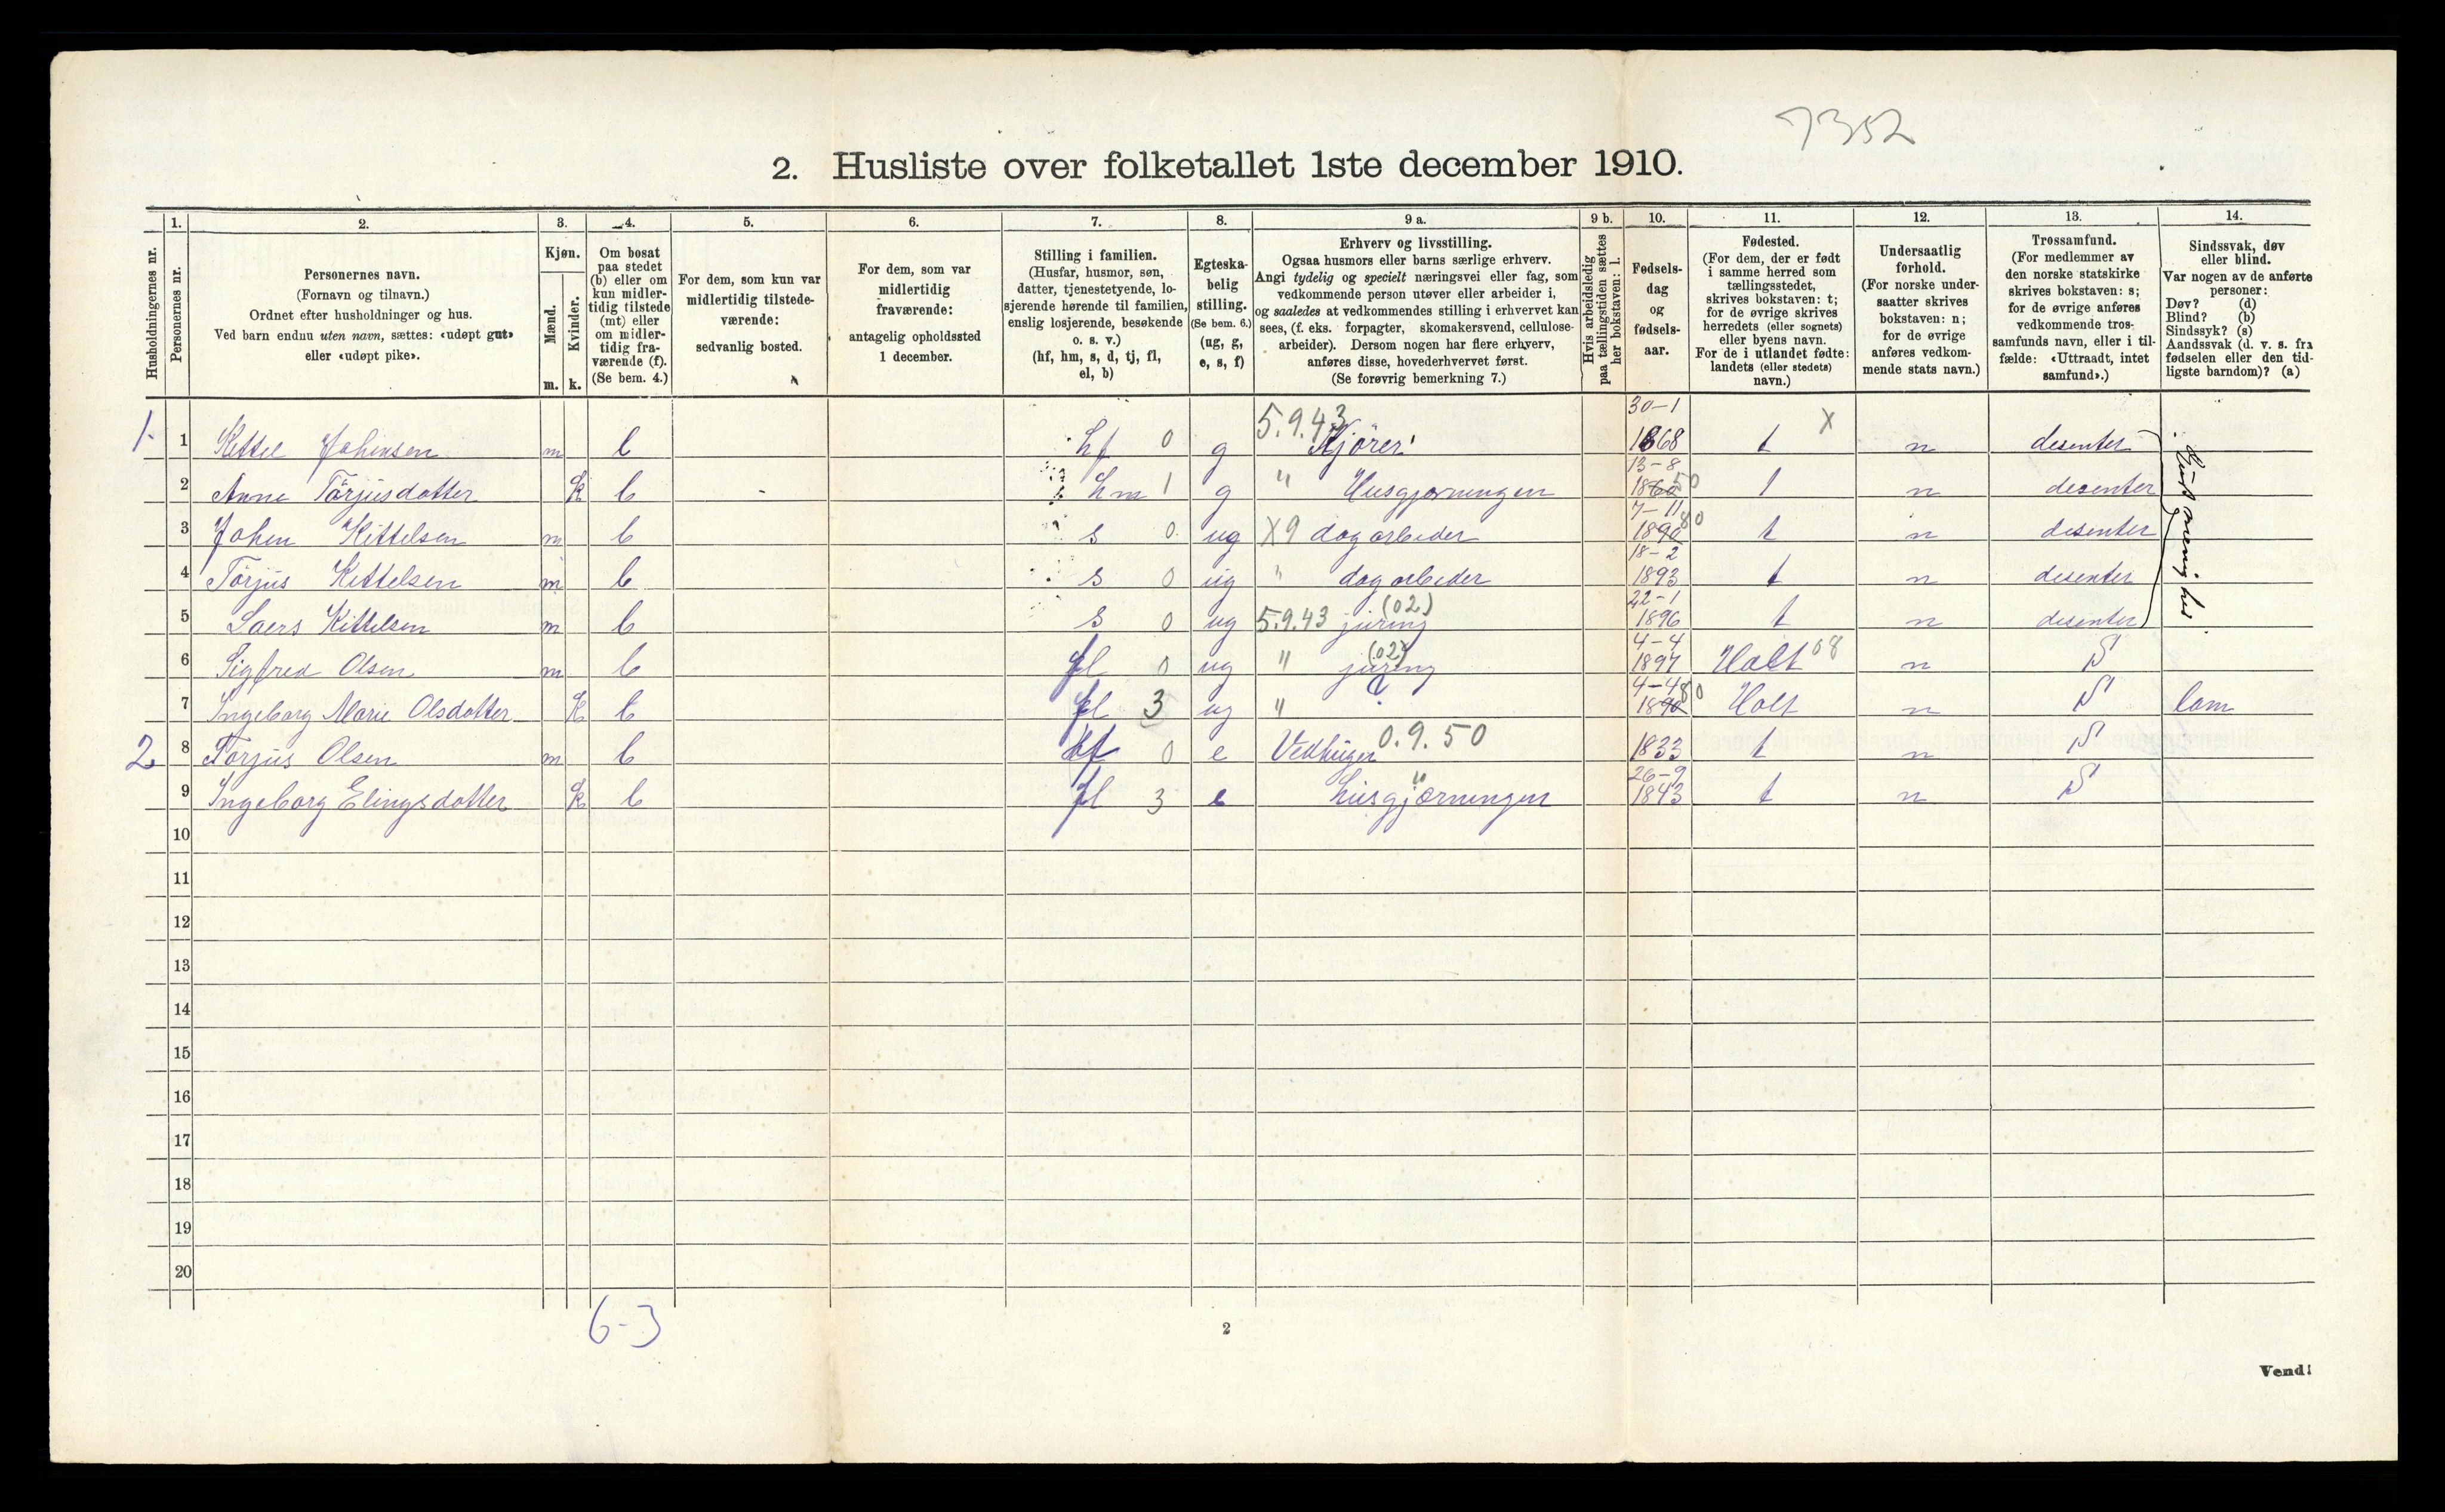 7352
2. Husliste over folketallet 1ste december 1910.
Husholdningernes nr.
1. Personernes nr.
2. Personernes navn. (Fornavn og tilnavn.) Ordnet efter husholdninger og hus. Ved barn endnu uten navn, sættes: «udøpt gut» eller «udøpt pike».
3. Kjøn. Mænd. m. Kvinder. k.
4. Om bosat paa stedet (b) eller om kun midlertidig tilstede (mt) eller om midlertidig fraværende (f). (Se bem. 4.)
5. For dem, som kun var midlertidig tilstedeværende: sedvanlig bosted.
6. For dem, som var midlertidig fraværende: antagelig opholdssted 1 december.
7. Stilling i familien. (Husfar, husmor, søn, datter, tjenestetyende, losjerende hørende til familien, enslig losjerende, besøkende o. s. v.) (hf, hm, s, d, tj, fl, el, b)
8. Egteskabelig stilling. (Se bem. 6.) (ug, g, e, s, f)
9 a. Erhverv og livsstilling. Ogsaa husmors eller barns særlige erhverv. Angi tydelig og specielt næringsvei eller fag, som vedkommende person utøver eller arbeider i, og saaledes at vedkommendes stilling i erhvervet kan sees, (f. eks. forpagter, skomakersvend, cellulose-arbeider). Dersom nogen har flere erhverv, anføres disse, hovederhvervet først. (Se forøvrig bemerkning 7.)
9 b. Hvis arbeidsledig paa tællingstiden sættes her bokstaven: l.
10. Fødselsdag og fødselsaar.
11. Fødested. (For dem, der er født i samme herred som tællingsstedet, skrives bokstaven: t; for de øvrige skrives herredets (eller sognets) eller byens navn. For de i utlandet fødte: landets (eller stedets) navn.)
12. Undersaatlig forhold. (For norske undersaatter skrives bokstaven: n; for de øvrige anføres vedkommende stats navn.)
13. Trossamfund. (For medlemmer av den norske statskirke skrives bokstaven: s; for de øvrige anføres vedkommende trossamfunds navn, eller i tilfælde: «Uttraadt, intet samfund».)
14. Sindssvak, døv eller blind. Var nogen av de anførte personer: Døv? (d) Blind? (b) Sindssyk? (s) Aandssvak (d. v. s. fra fødselen eller den tidligste barndom)? (a)
1. 1 Kettel Johensen m b hf 0 g 5.9.43 Kjörer 30-1 1868 t X n desenter
2 Anne Törjusdotter k b hm 1 g " Husgjorningen 13-8 1860 50 t n desenter
3 Johen Kittelsen m b s 0 ug X9 dagarbeder 7-11 1890 80 t n desenter
4 Törjus Kettelsen m b s 0 ug " dagarbeder 18-2 1893 t n desenter
5 Laers Kittelsen m b s 0 ug 5.9.43 juring (02) 22-1 1896 t n desenter
6 Sigfred Olsen m b fl 0 ug " juring (02) 4-4 1897 Holt 08 n S
7 Ingeborg Marie Olsdotter k b fl 3 ug " ? 4-4 1890 80 Holt n S lam
2 8 Torjus Olsen m b hf 0 e Vedhuger 0.9.50 1833 t n S
9 Ingeborg Elingsdotter k b fl 3 e " husgjorningen 26-9 1843 t n S
10
11
12
13
14
15
16
17
18
19
20
6-3
2
Vend!